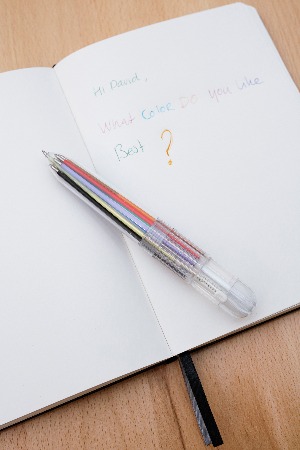 Hi David,
What Color Do You Like
Best ?